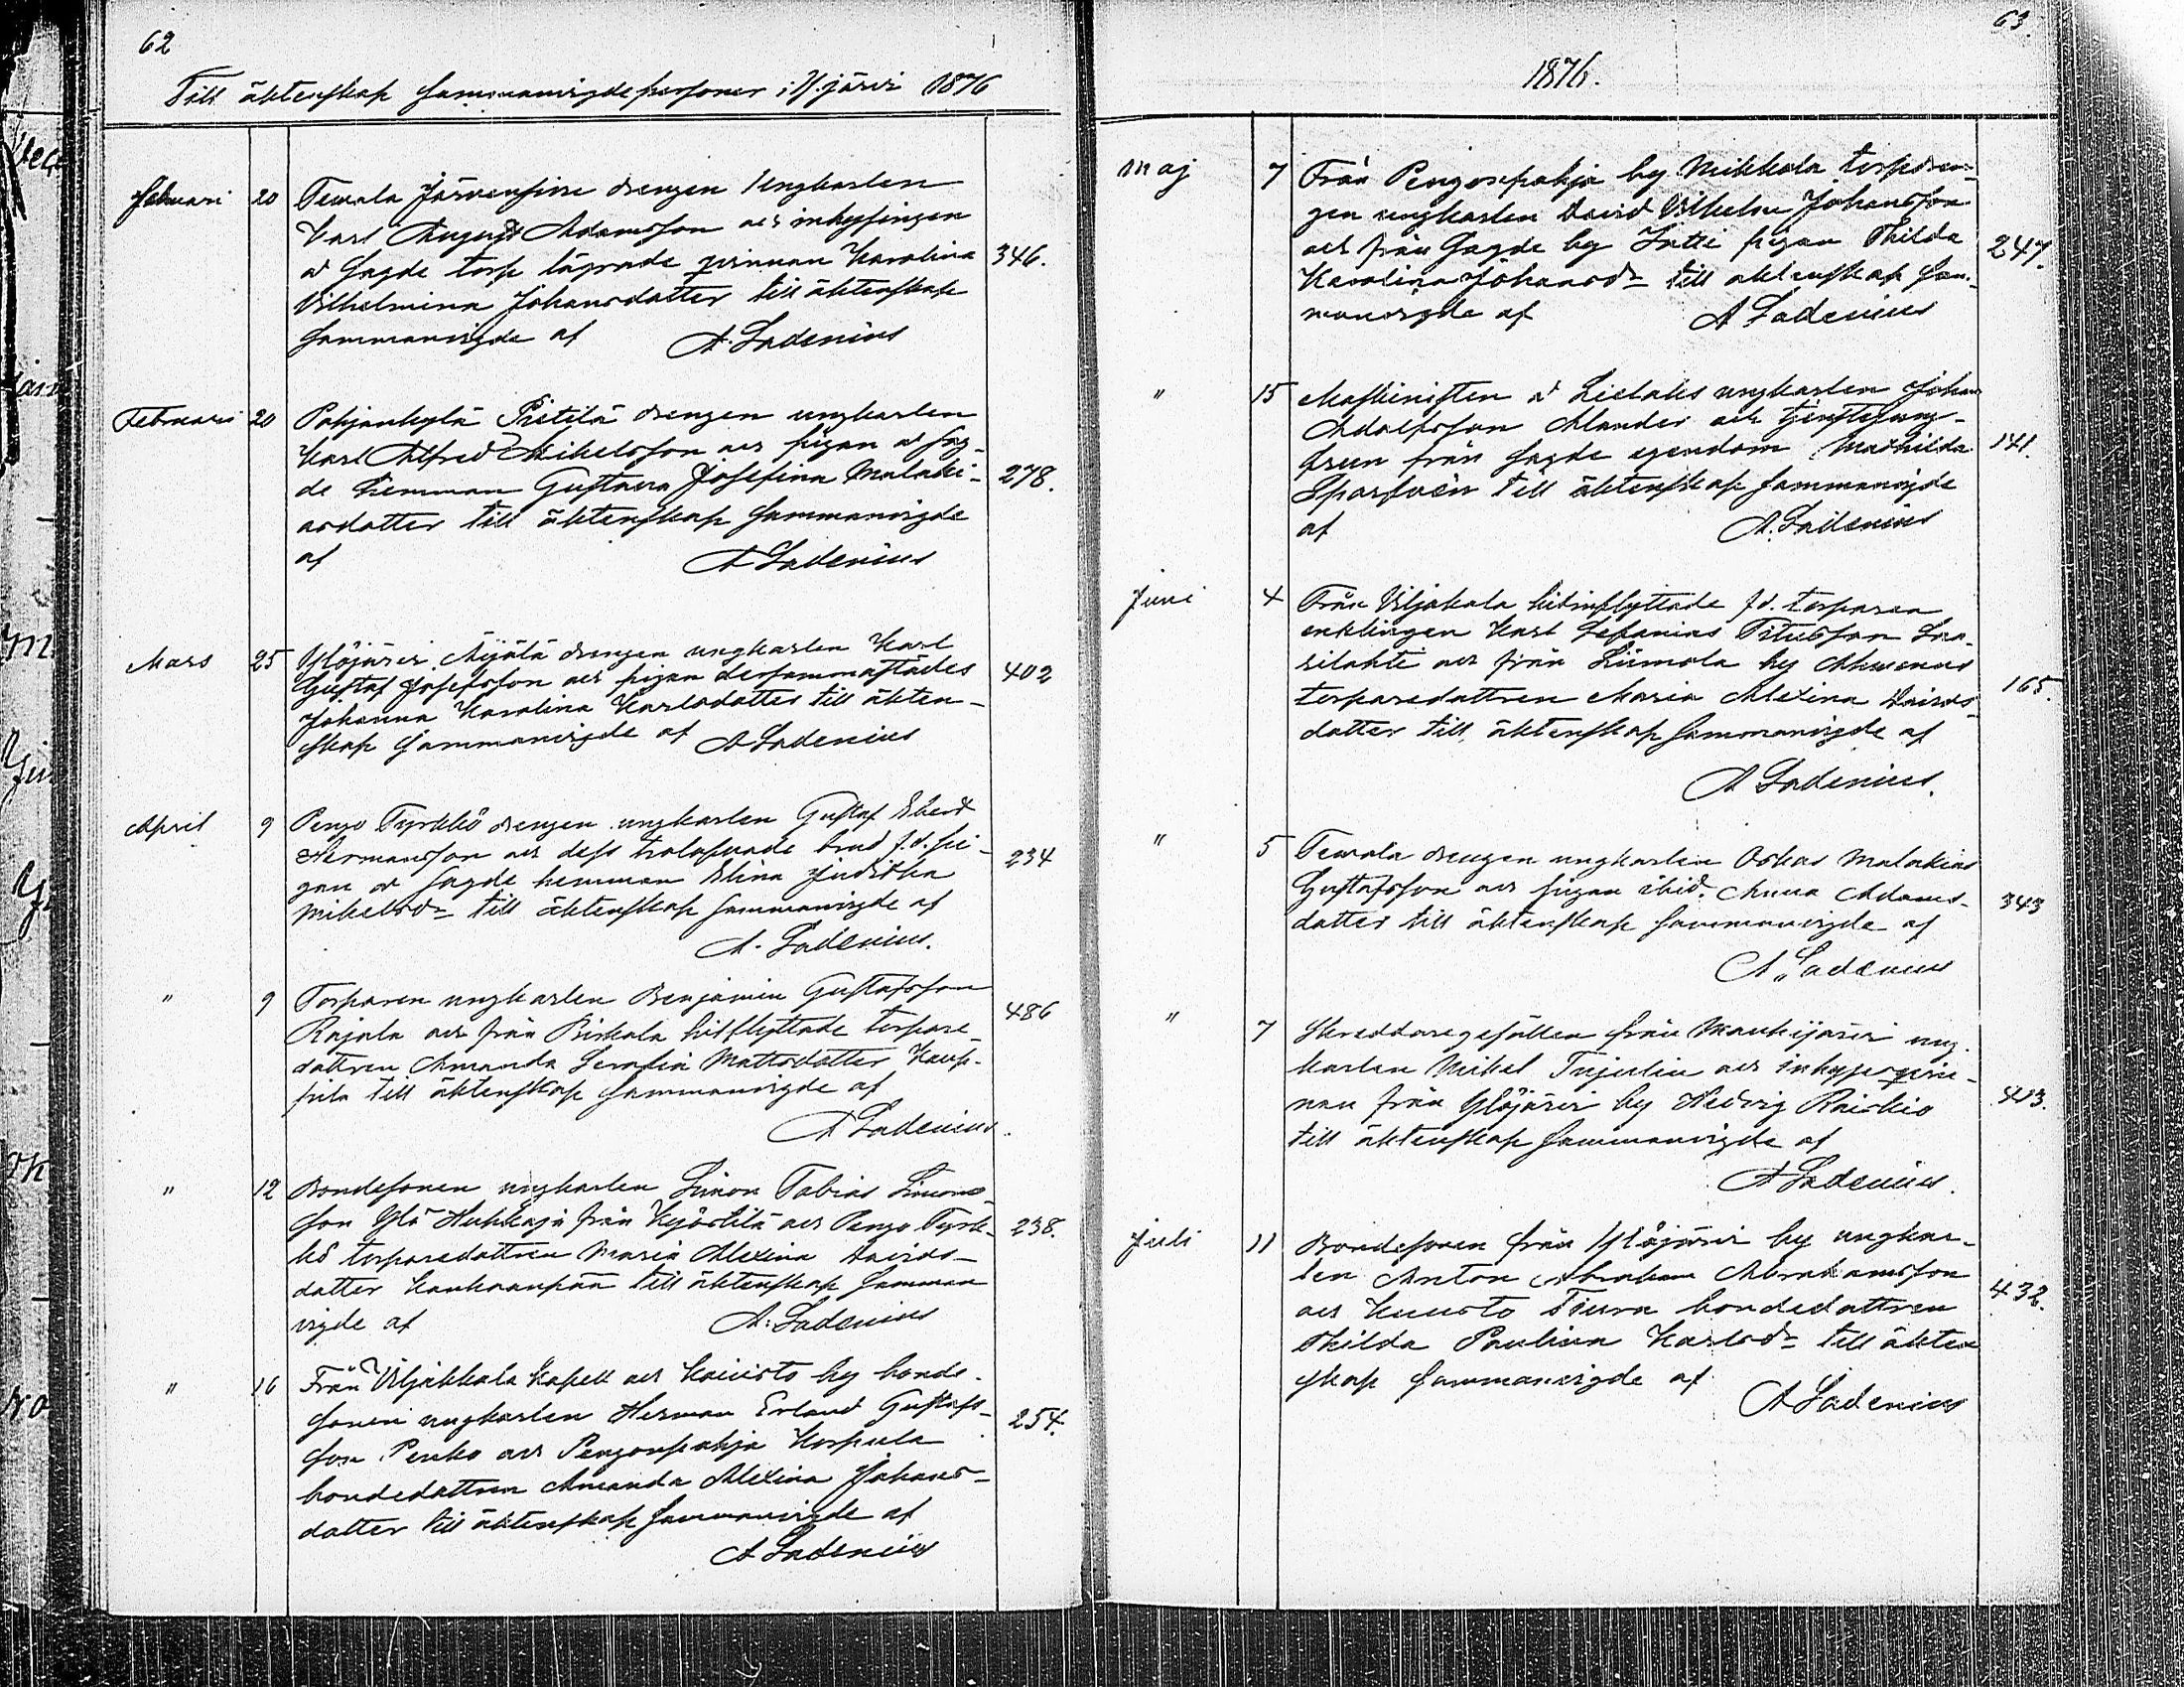 62
Till äktenskap sammanvigde personer i Y.järvi 1876
Februari 20 Temala Järvensivu drengen Ungkarlen
Karl August Adamsson och inhysingen
å sagde torp lägrade qvinnan Karolina 346.
Vilhelmina Johansdotter till äktenskap
sammanvigde af A. Ladenius
Februari 20 Pohjankylä Pietilä drengen ungkarlen
Karl Alfred Mikelsson och pigan å sag-
de hemman Gustava Josefina Malaki- 278.
asdotter till äktenskap sammanvigde
af A Ladenius
Mars 25 Ylöjärvi Äijälä drengen ungkarlen Karl
Gustaf Josefsson och pigan dersammastädes 402
Johanna Karolina Karlsdotter till äkten-
skap sammanvigde af A Ladenius
April 9 Pengo Tyrkkö drengen ungkarlen Gustaf Evert
Hermansson och dess trolofvade brud f.d. pi- 234
gan å sagde hemman Elina Juditha
Mikelsdr till äktenskap sammanvigde af
A. Ladenius.
" 9 Torparen ungkarlen Benjamin Gustafsson
Rajala och från Birkala hitflyttade torpare- 486
dottren Amanda Serafia Mattsdotter Kaup-
pila till äktenskap sammanvigde af
A Ladenius.
" 12 Bondesonen ungkarlen Simon Tobias Simons-
son Ylä Huhkaja från Kyöstilä och Pengo Tyrk- 238.
kö torparedottren Maria Alexina Davids-
dotter Kaukaanpää till äktenskap samman
vigde af A. Ladenius
" 16 Från Viljakkala kapell och Kaivisto by bonde-
sonen ungkarlen Herman Erland Gustafs- 254.
son Penko och Pengonpohja Korpula
bondedottren Amanda Alexina Johans-
dotter till äktenskap sammanvigde af
A Ladenius
63.
1876.
Maj 7 Från Pengonpohja by Mikkola torpdren-
gen ungkarlen David Vilhelm Johansson
och från sagde by Intti pigan Thilda 247.
Karolina Johansdr till äktenskap sam-
manvigde af A Ladenius
" 15 Maskinisten å Lielaks ungkarlen Johan
Adolfsson Alander och tjensteqvin-
frun från sagde egendom Mathilda 141.
Sparfvén till äktenskap sammanvigde
af A. Ladenius
Juni 4 Från Viljakala hitinflyttade f.d. torparen
enklingen Karl Sefanias Titusson Laa-
silahti och från Siimola by Ahvenus
torparedottren Maria Alexina Davids- 165.
dotter till äktenskap sammanvigde af
A Ladenius.
" 5 Temala drengen ungkarlen Oskar Malakias
Gustafsson och pigan ibid. Anna Adams- 343
dotter till äktenskap sammanvigde af
A Ladenius
" 7 Skreddaregesällen från Mouhijärvi ung-
karlen Mikel Tujulin och inhysesqvin-
nan från Ylöjärvi by Hedvig Raiskio 413.
till äktenskap sammanvigde af
A Ladenius.
Juli 11 Bondesonen från Ylöjärvi by ungkar-
len Anton Abraham Abrahamsson
och Kuusto Tiura bondedottren 432.
Thilda Paulina Karlsdr till äkten
skap sammanvigde af
A Ladenius